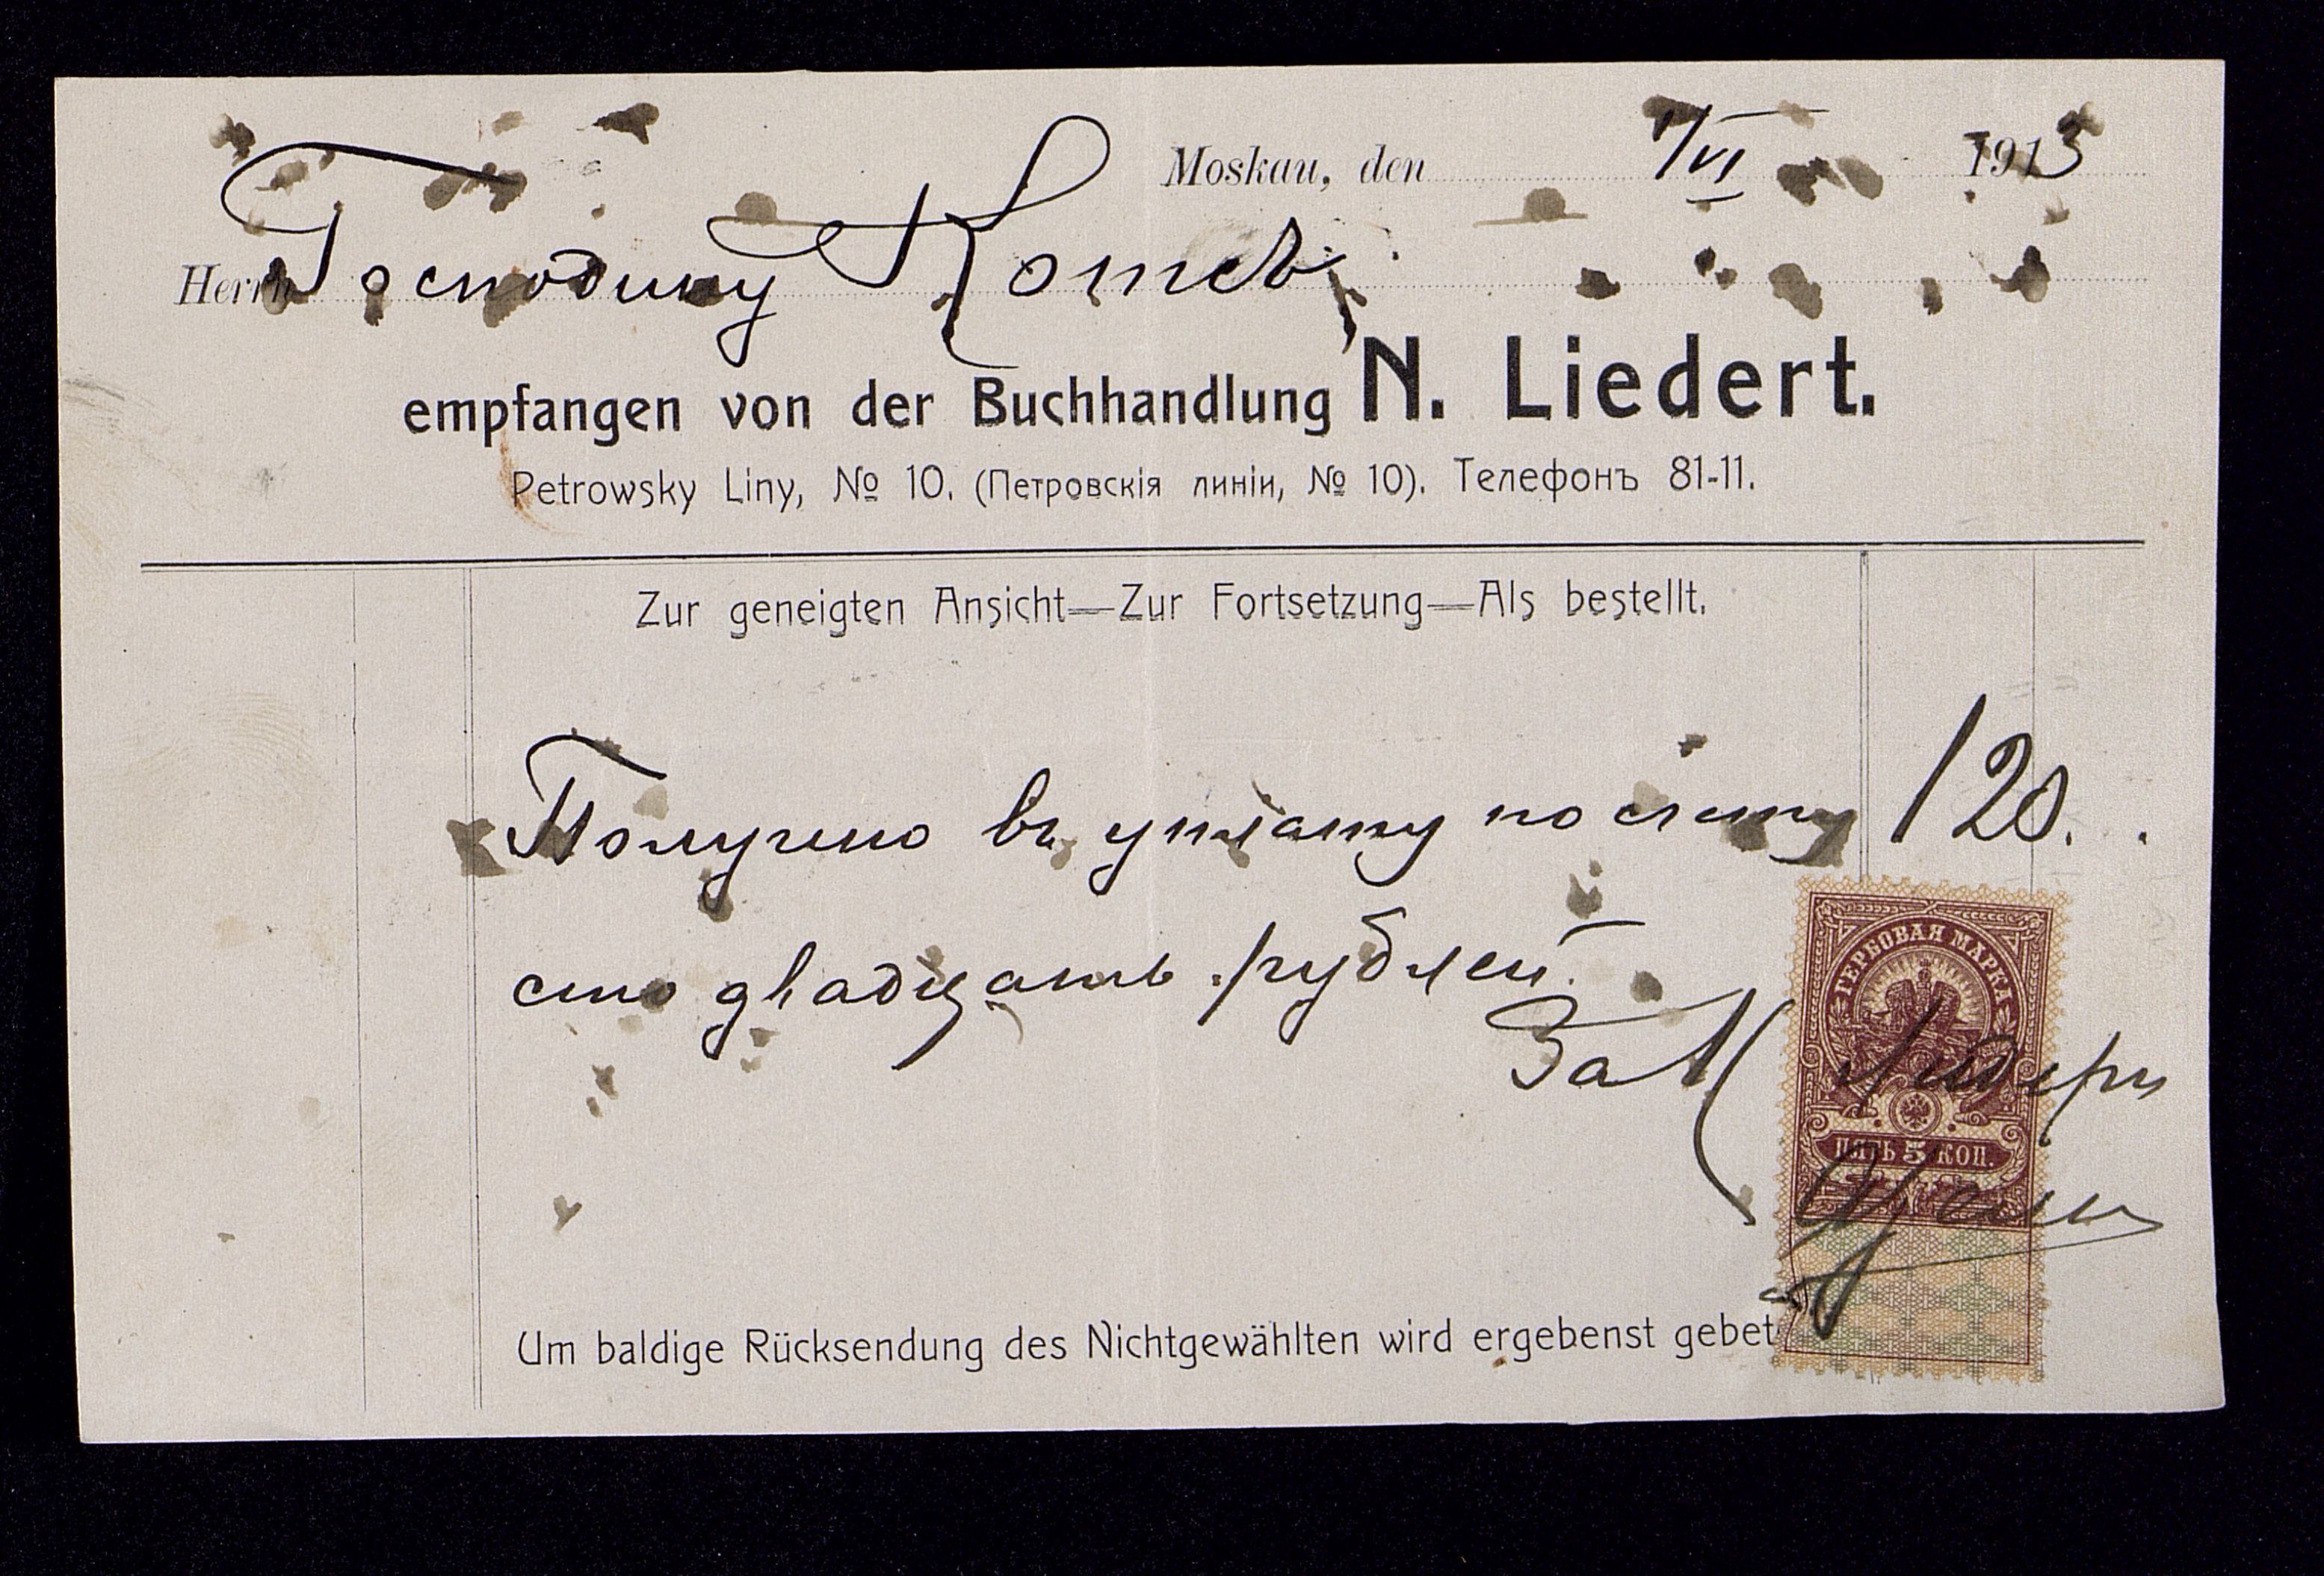 Moskau, den 1/VI 1913
Herrn Господину Котсъ
empfangen von der Buchhandlung N. Liedert.
Petrowsky Liny, № 10. (Петровскія линіи, № 10). Телефонъ 81-11.
Zur geneigten Ansicht—Zur Fortsetzung—Als bestellt.
Получено въ уплату по счету 120.
сто двадцать рублей.
За Н Лидертъ
ГЕРБОВАЯ МАРКА
ПЯТЬ 5 КОП.
Um baldige Rücksendung des Nichtgewählten wird ergebenst gebet